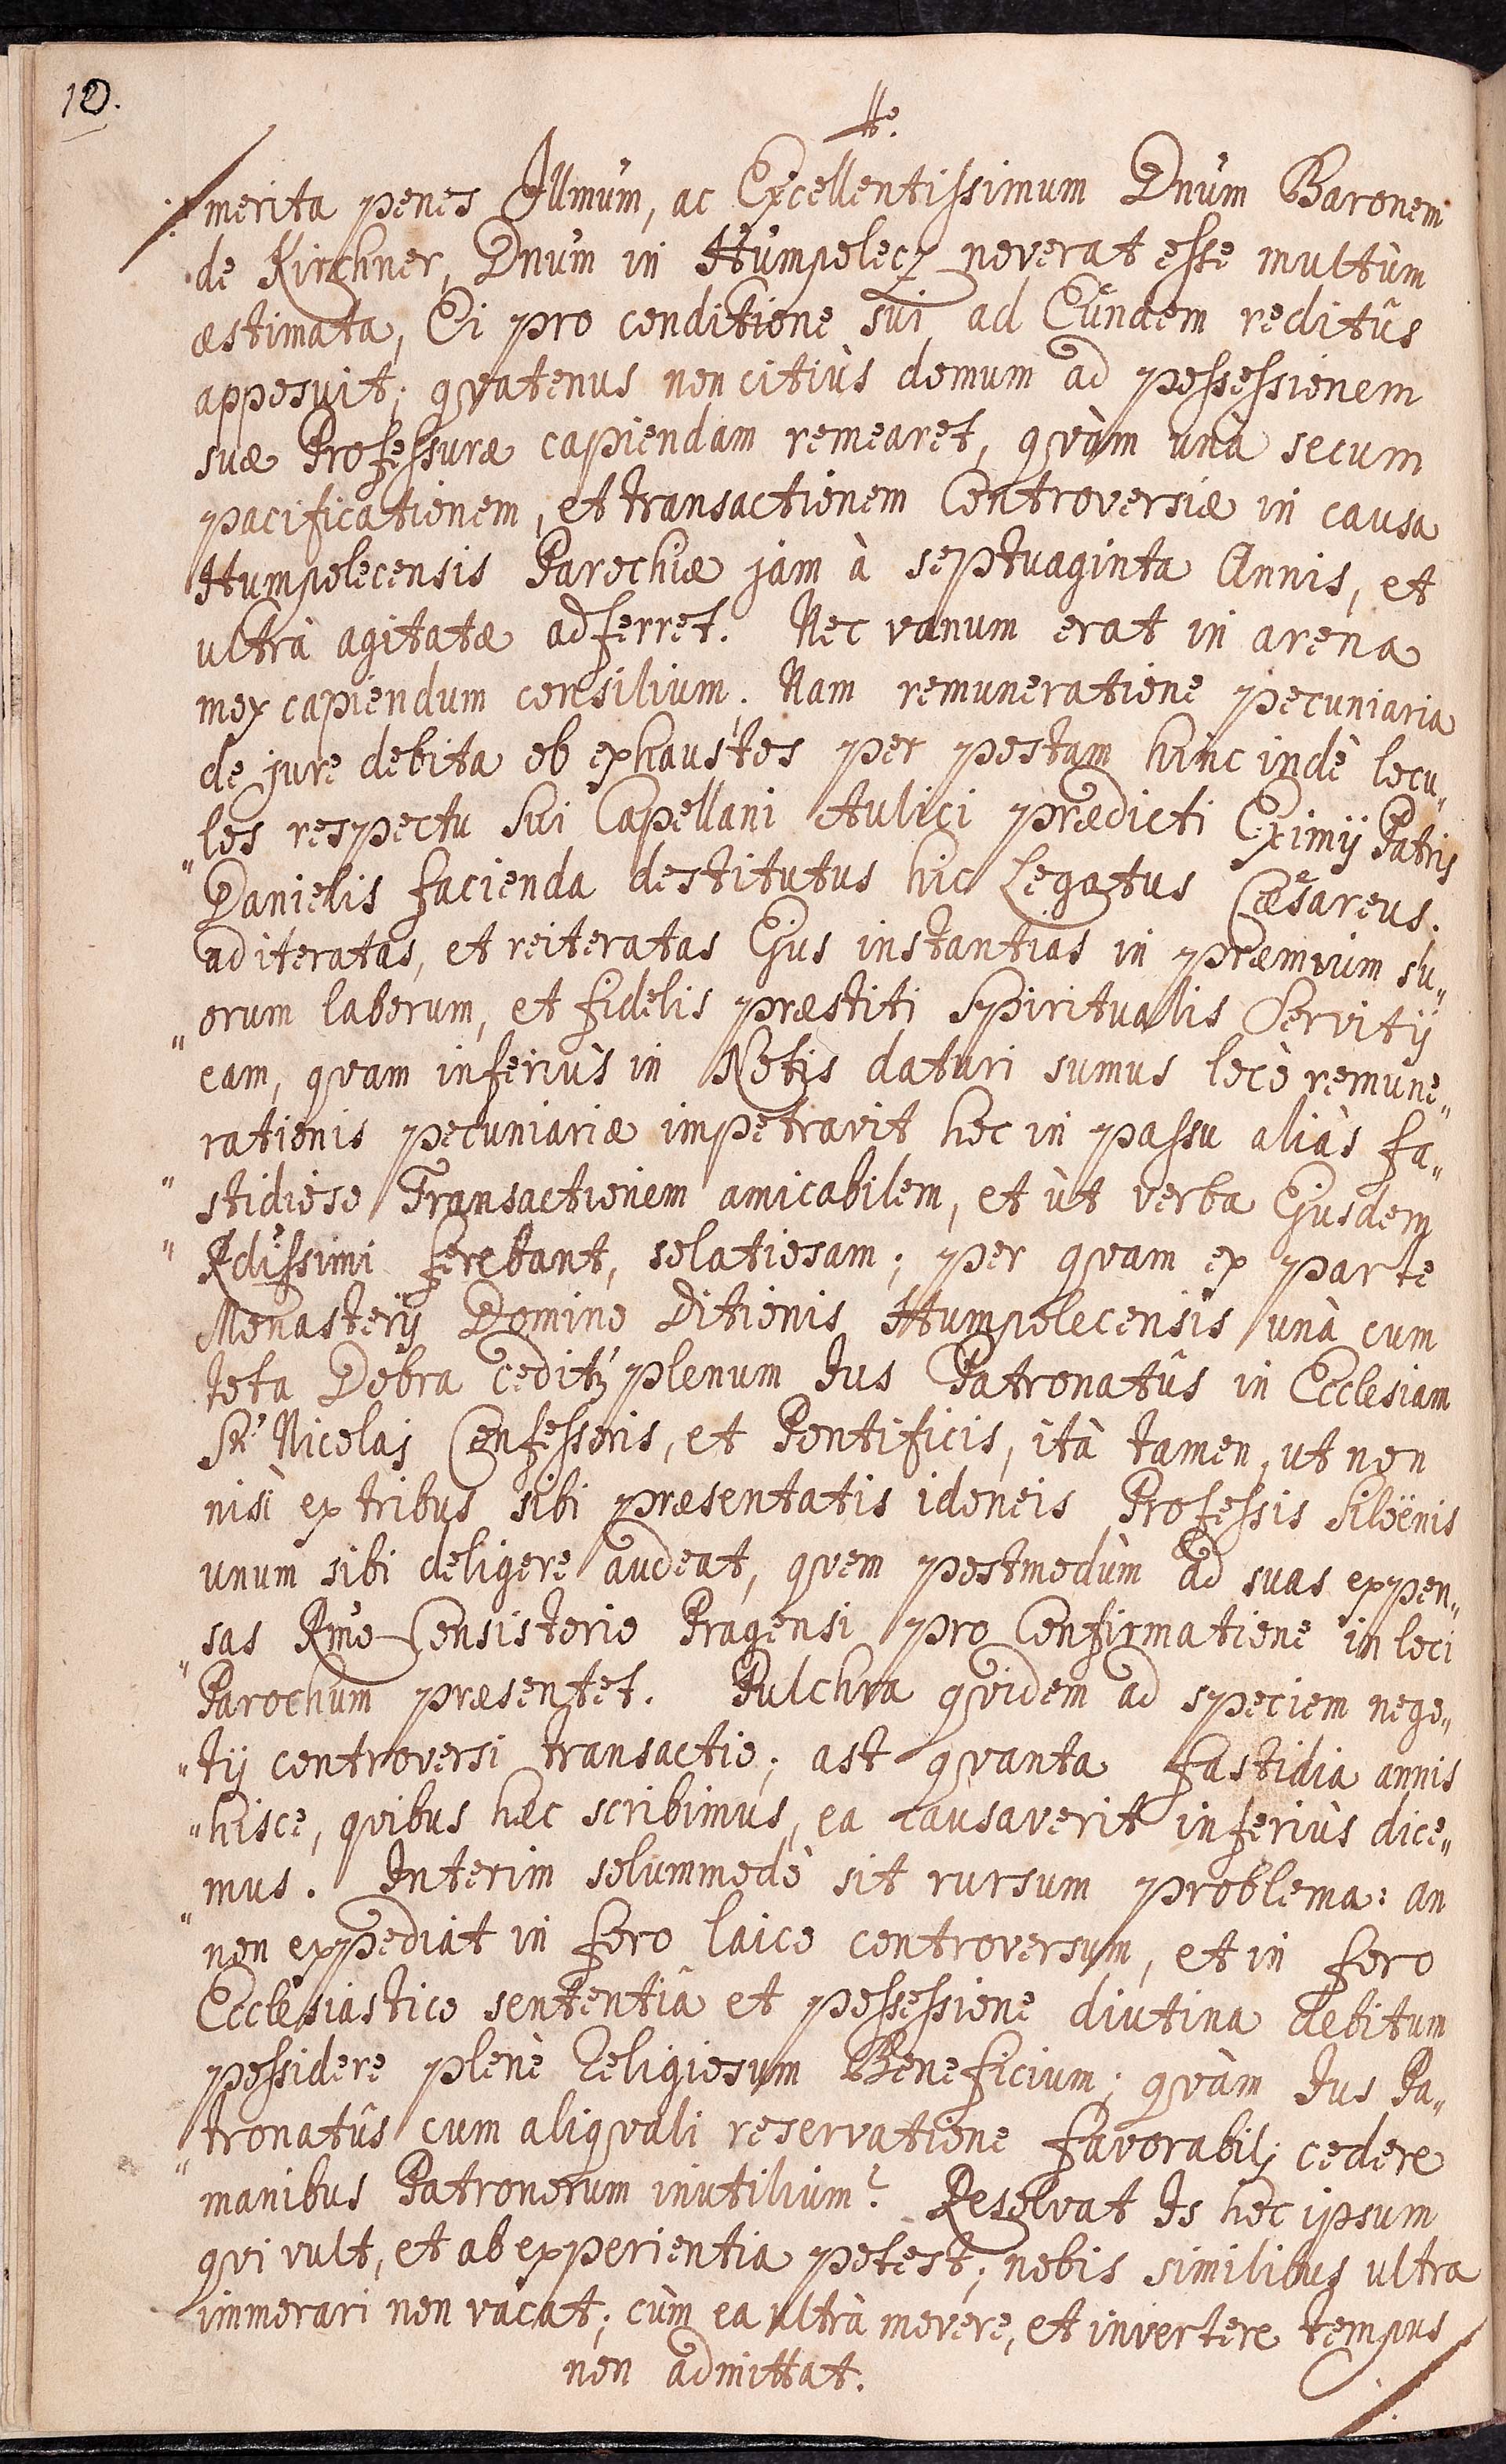 10.
merita penes Illmum, ac Excellentissimum Dnum Baronem
de Kirchner, Dnum in Humpolecz noverat esse multùm
æstimata, Ei pro conditione sui ad Eundem reditûs
apposuit; qvatenus non citiùs domum ad possessionem
suæ Professuræ capiendam remearet, qvàm unà secum
pacificationem, et transactionem Controversiæ in causa
Humpolecensis Parochiæ jam à septuaginta Annis, et
ultrà agitatæ adferret. Nec vanum erat in arena
mox capiendum consilium. Nam remuneratione pecuniaria
de jure debita ob exhaustos per postam hinc indè locu„
„los respectu sui Capellani Aulici prædicti Eximij Patris
Danielis facienda destitutus hic Legatus Cæsareus;
ad iteratas, et reiteratas Ejus instantias in præmium su„
„orum laborum, et fidelis præstiti Spiritualis Servitij
eam, qvam inferiùs in Notis daturi sumus locò remune„
„rationis pecuniariæ impetravit hoc in passu aliàs fa„
„stidioso Transactionem amicabilem, et ùt verba Ejusdem
„Rdissimi ferebant, solatiosam; per qvam ex parte
Monasterij Domino Ditionis Humpolecensis unà cum
tota Dobra ceditq plenum Jus Patronatûs in Ecclesiam
S. Nicolai Confessoris, et Pontificis, ità tamen, ut non
nisi ex tribus sibi præsentatis idoneis Professis Siloënis
unum sibi deligere audeat, qvem postmodùm ad suas expen„
„sas Rmo Consistorio Pragensi pro Confirmatione in loci
Parochum præsentet. Pulchra qvidem ad speciem nego„
„tij controversi transactio; ast qvanta fastidia annis
„hisce, qvibus hæc scribimus, ea causaverit inferiùs dice„
„mus. Interim solummodò sit rursum problema: an
non expediat in foro laico controversum, et in foro
Ecclesiastico sententiâ et possessione diutina debitum
possidere plenè Religiosum Beneficium; qvàm Jus Pa„
„tronatûs cum aliqvali reservatione favorabili cedere
manibus Patronorum inutilium? Resolvat Is hoc ipsum
qvi vult, et ab experientia potest; nobis similibus ultra
immorari non vacat; cùm ea ultrà movere, et invertere tempus
non admittat.